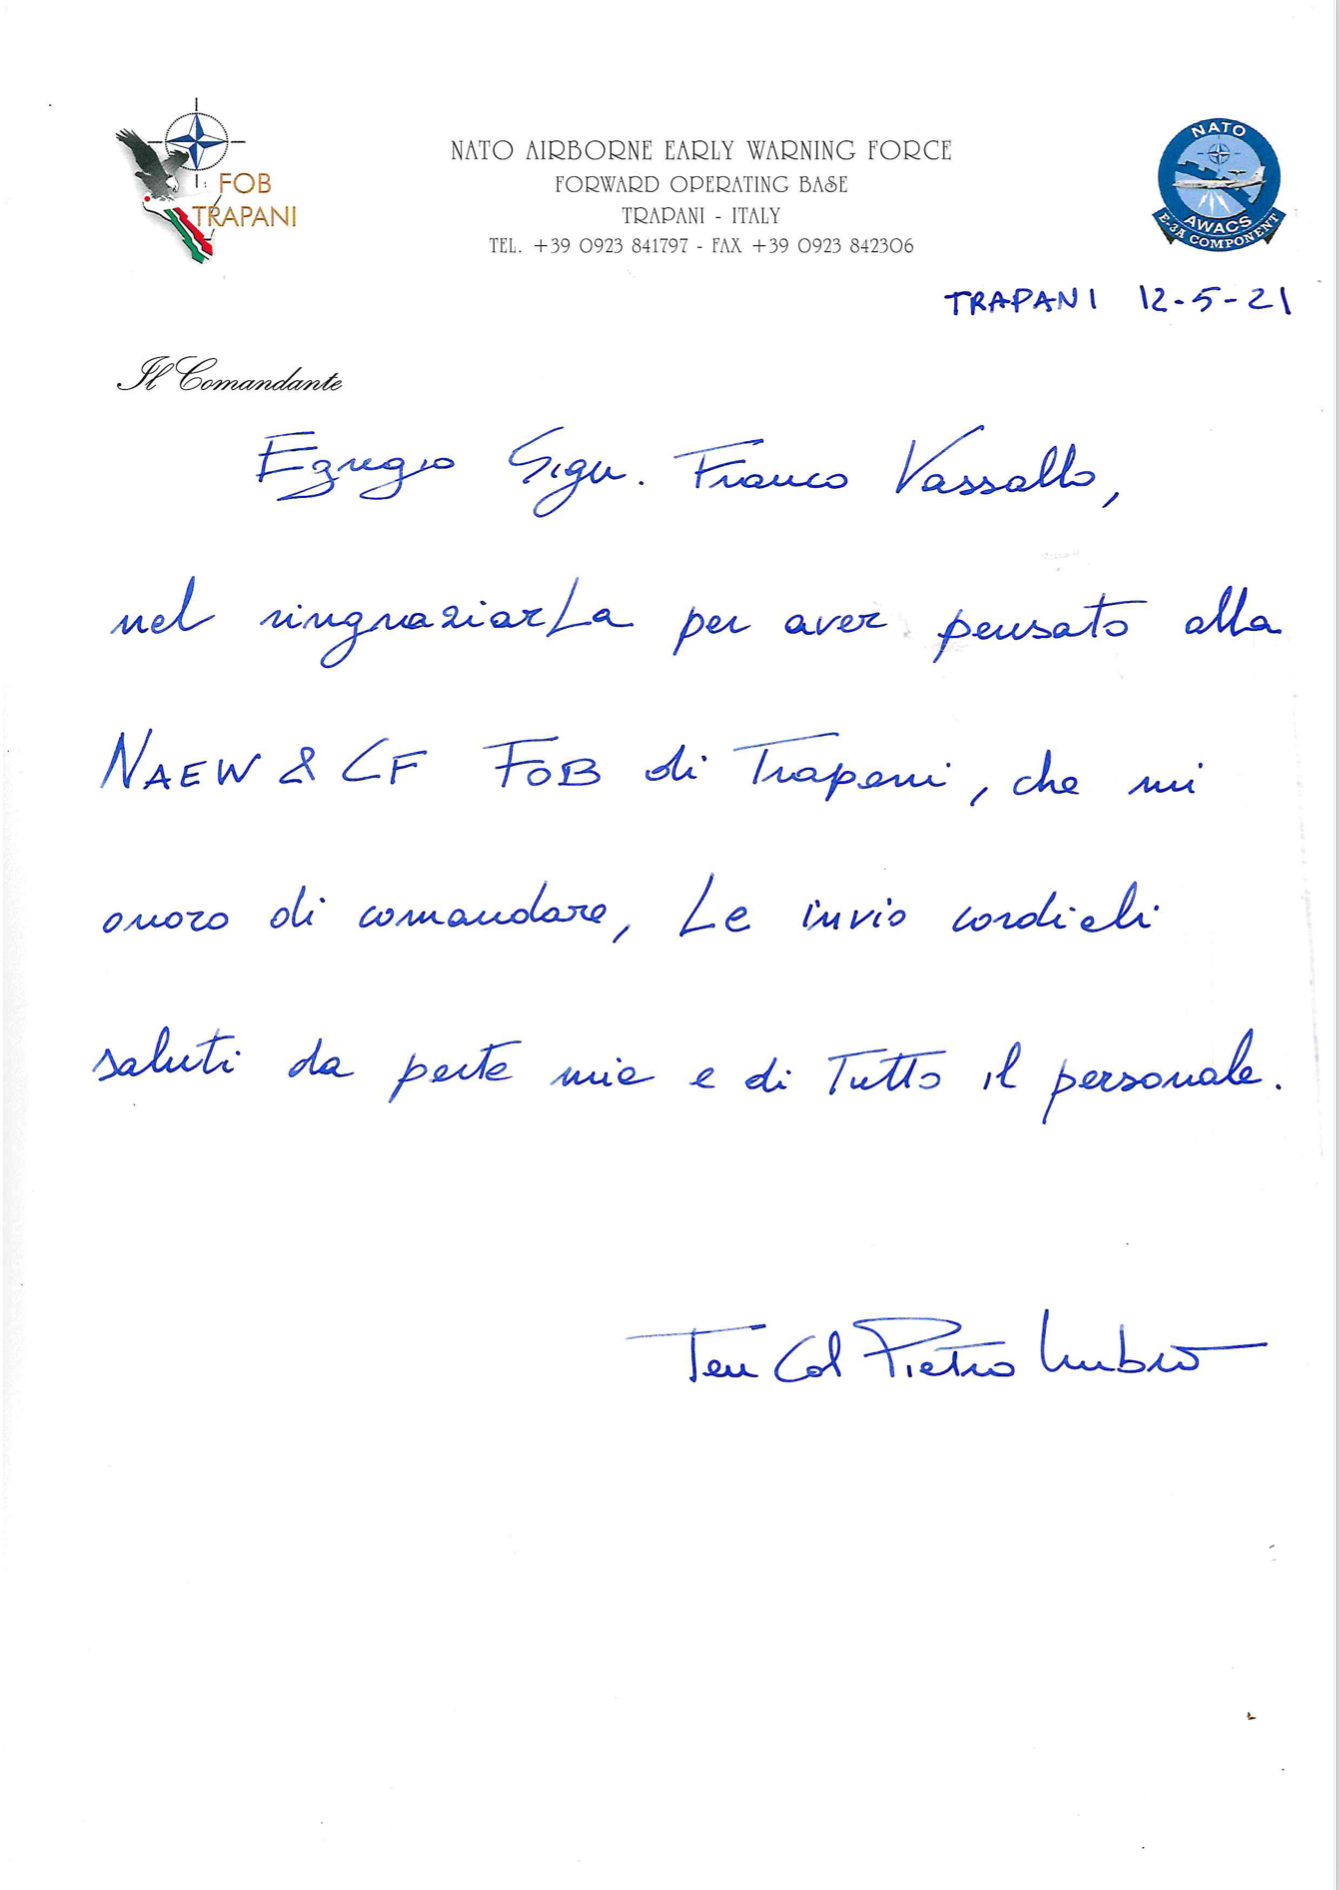 FOB
TRAPANI
NATO AIRBORNE EARLY WARNING FORCE
FORWARD OPERATING BASE
TRAPANI - ITALY
TEL. +39 0923 841797 - FAX +39 0923 842306
NATO
AWACS
E-3A COMPONENT
TRAPANI 12-5-21
Il Comandante
Egregio Sign. Franco Vassallo,
nel ringraziarLa per aver pensato alla
NAEW & CF FOB di Trapani, che mi
onoro di comandare, Le invio cordiali
saluti da parte mia e di Tutto il personale.
Ten Col Pietro